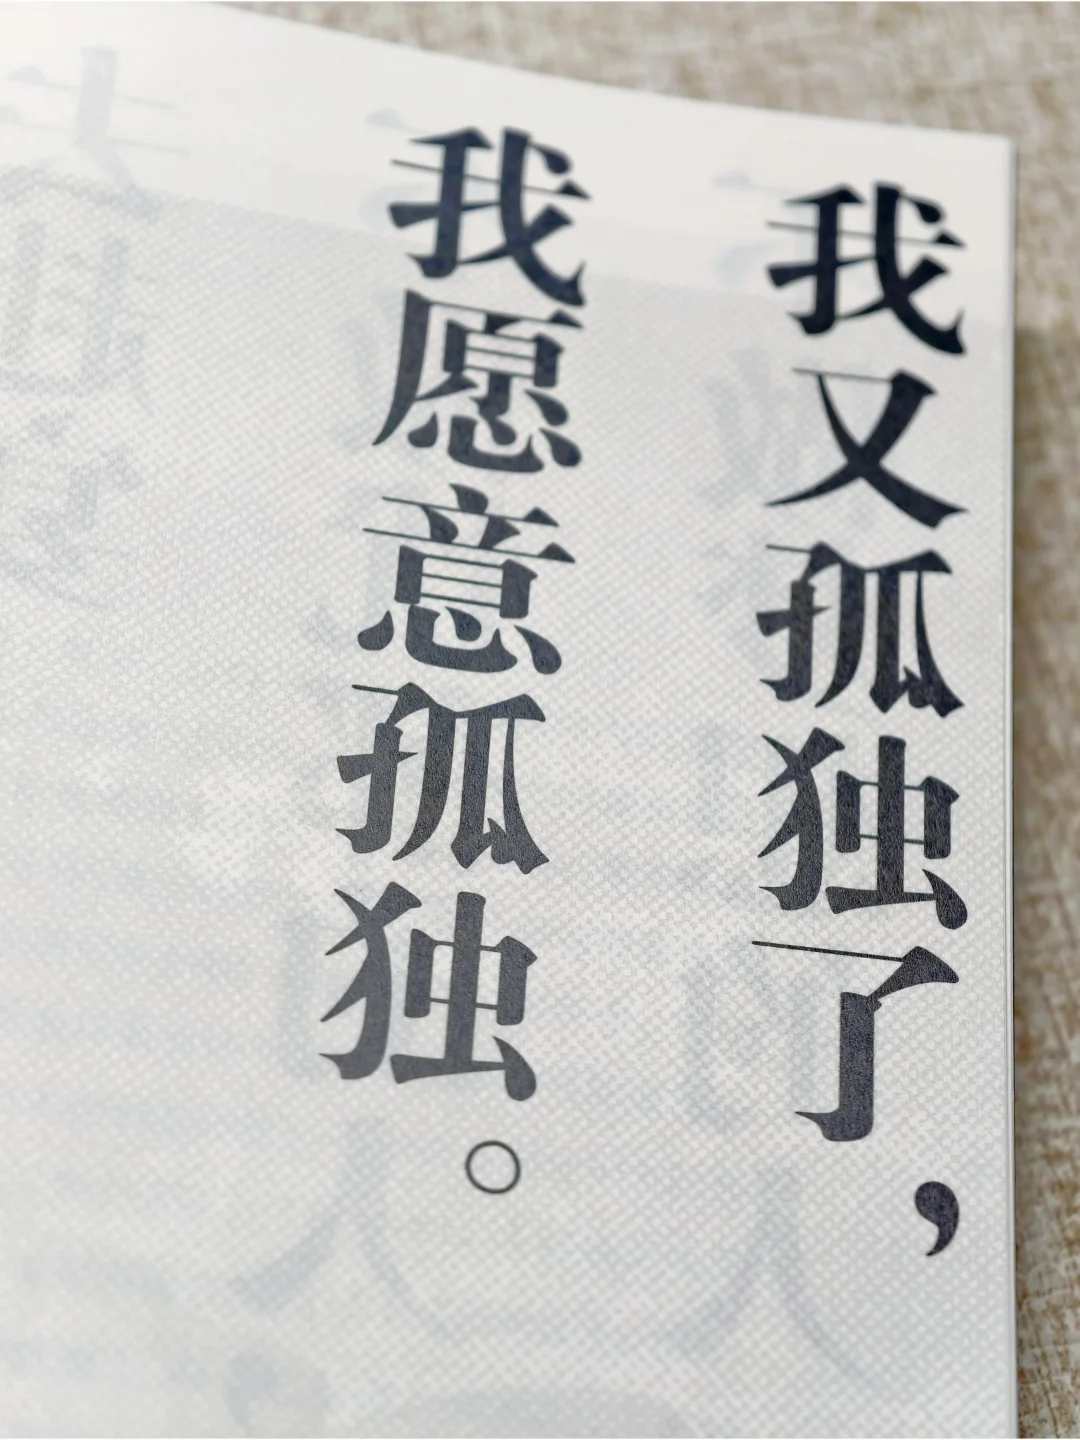 我又孤独了，
我愿意孤独。